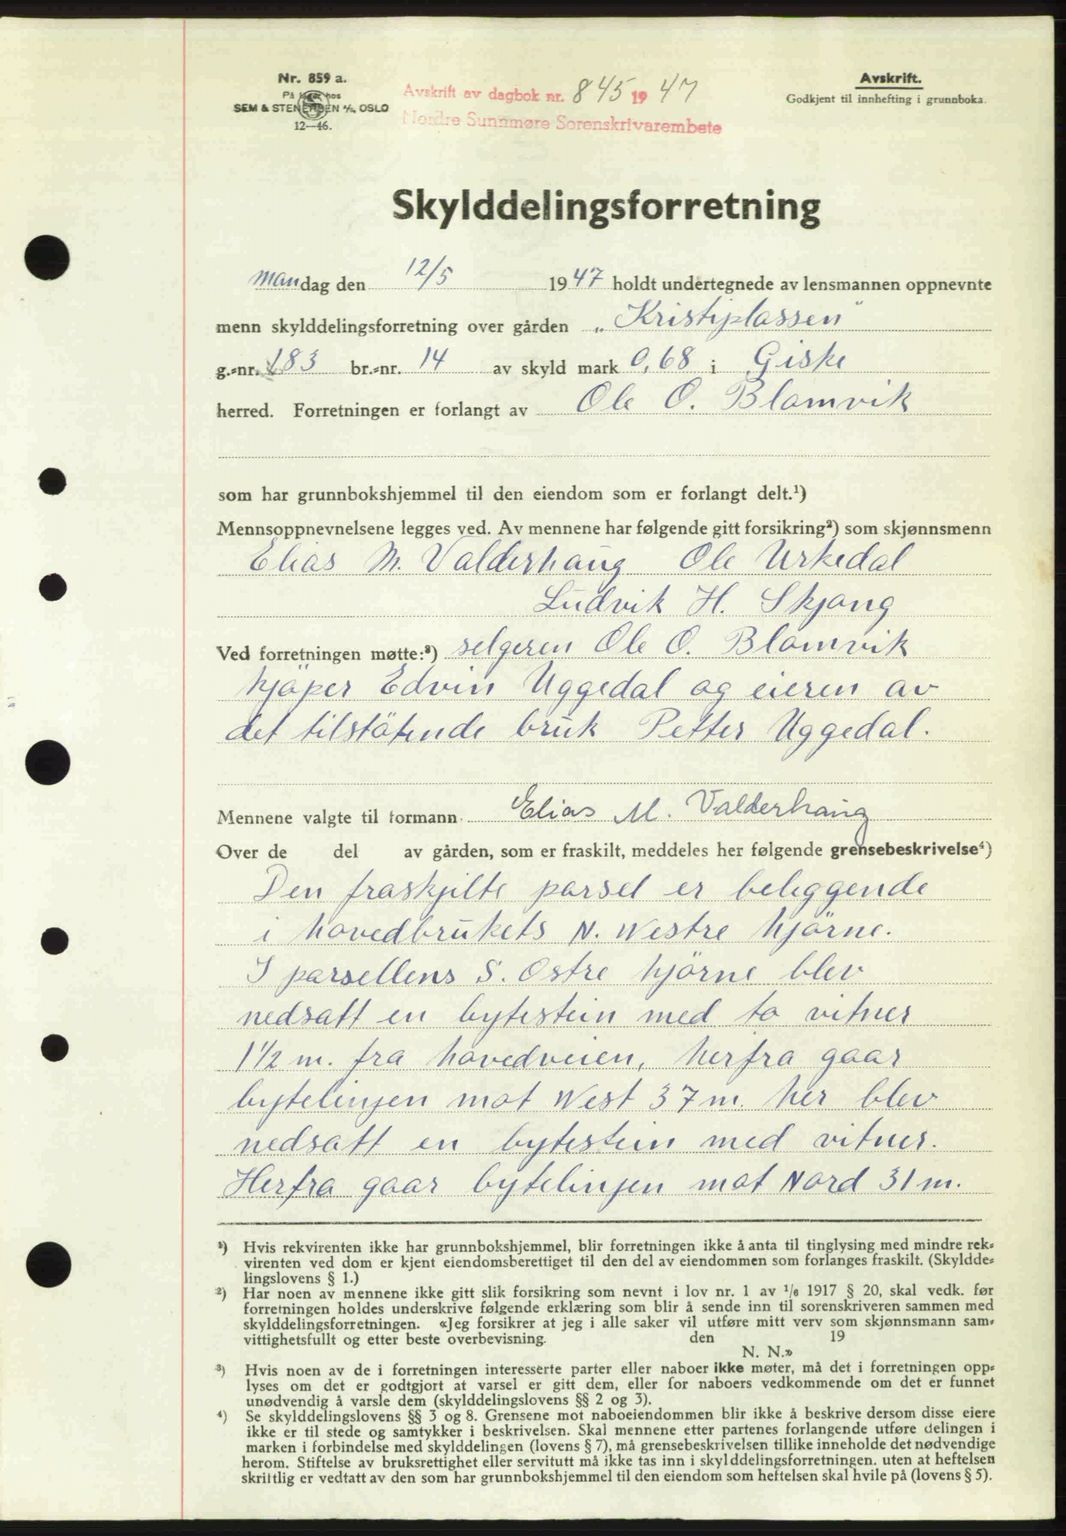 Nr. 859 a.
På lager hos
SEM & STENERSEN A/S, OSLO
12—46.
Avskrift av dagbok nr. 845 19 47
Nordre Sunnmøre Sorenskrivarembete
Avskrift.
Godkjent til innhefting i grunnboka.
Skylddelingsforretning
mandag den 12/5 1947 holdt undertegnede av lensmannen oppnevnte
menn skylddelingsforretning over gården „Kristiplassen"
g.-nr. 183 br.-nr. 14 av skyld mark 0,68 i Giske
herred. Forretningen er forlangt av Ole O. Blomvik
som har grunnbokshjemmel til den eiendom som er forlangt delt.¹)
Mennsoppnevnelsene legges ved. Av mennene har følgende gitt forsikring²) som skjønnsmenn
Elias M. Valderhaug Ole Urkedal
Ludvik H. Skjong
Ved forretningen møtte:³) selgeren Ole O. Blomvik
kjöper Edvin Uggedal og eieren av
det tilstötende bruk Petter Uggedal.
Mennene valgte til formann Elias M. Valderhaug
Over de del av gården, som er fraskilt, meddeles her følgende grensebeskrivelse⁴)
Den fraskjilte parsel er beleggende
i hovedbrukets N. Westre hjörne.
I parsellens S. Ostre hjörne blev
nedsatt en bytestein med to vitner
1½ m. fra hovedveien, herfra gaar
bytelinjen mot West 37 m. her blev
nedsatt en bytestein med vitner.
Herfra gaar bytelinjen mot Nord 31 m.
¹) Hvis rekvirenten ikke har grunnbokshjemmel, blir forretningen ikke å anta til tinglysing med mindre rek-
virenten ved dom er kjent eiendomsberettiget til den del av eiendommen som forlanges fraskilt. (Skyldde-
lingslovens § 1.)
²) Har noen av mennene ikke gitt slik forsikring som nevnt i lov nr. 1 av 1/6 1917 § 20, skal vedk. før
forretningen holdes underskrive følgende erklæring som blir å sende inn til sorenskriveren sammen med
skylddelingsforretningen. «Jeg forsikrer at jeg i alle saker vil utføre mitt verv som skjønnsmann sam-
vittighetsfullt og etter beste overbevisning. den 19
N. N.»
³) Hvis noen av de i forretningen interesserte parter eller naboer ikke møter, må det i forretningen opp-
lyses om det er godtgjort at varsel er gitt dem, eller for naboers vedkommende om det er funnet
unødvendig å varsle dem (skylddelingslovens §§ 2 og 3).
⁴) Se skylddelingslovens §§ 3 og 8. Grensene mot naboeiendommen blir ikke å beskrive dersom disse eiere
ikke er til stede og samtykker i beskrivelsen. Skal mennene etter partenes forlangende utføre delingen i
marken i forbindelse med skylddelingen (lovens § 7), må grensebeskrivelsen tillike inneholde det nødvendige
herom. Stiftelse av bruksrettighet eller servitutt må ikke tas inn i skylddelingsforretningen, uten at heftelsen
skriftlig er vedtatt av den som har grunnbokshjemmel til den eiendom som heftelsen skal hvile på (lovens § 5).